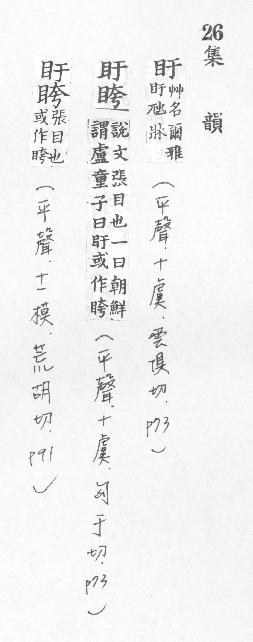 26集 韻
盱艸名爾雅盱虺牀(平聲.十虞.雲俱切.P73)
盱𥆘說文張目也一曰朝鮮謂盧童子曰盱或作𥆘(平聲.十虞.匈于切.P73)
盱𥆘張目也或作𥆘(平聲.十一模.荒胡切.P91)